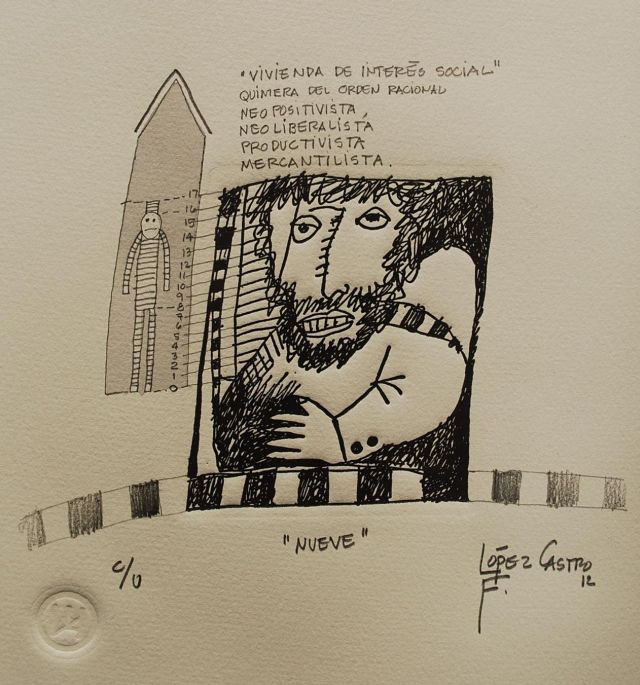 "VIVIENDA DE INTERÉS SOCIAL"
QUIMERA DEL ORDEN RACIONAL
NEOPOSITIVISTA,
NEOLIBERALISTA
PRODUCTIVISTA
MERCANTILISTA.
17
16
15
14
13
12
11
10
9
8
7
6
5
4
3
2
1
0
"NUEVE"
C/U
LÓPEZ CASTRO
F. 12